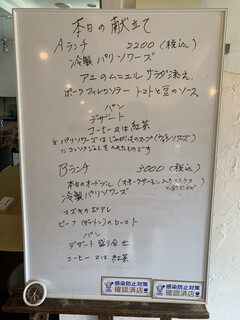 本日の献立て
Aランチ 2200(税込)
冷製パリソワーズ
アユのムニエル サラダ添え
ポークフィレソテー トマトと豆のソース
パン
デザート
コーヒー又は紅茶
※パリソワーズはじゃがいものスープ(ヴィシソワーズ)
にコンソメジュレを入れたものです
Bランチ 3000(税込)
本日のオードブル(スモークサーモン
冷製パリソワーズ
スズキのポアレ
ビーフ のロースト
パン
デザート盛り合せ
コーヒー又は紅茶
感染防止対策
確認済店
感染防止対策
確認済店